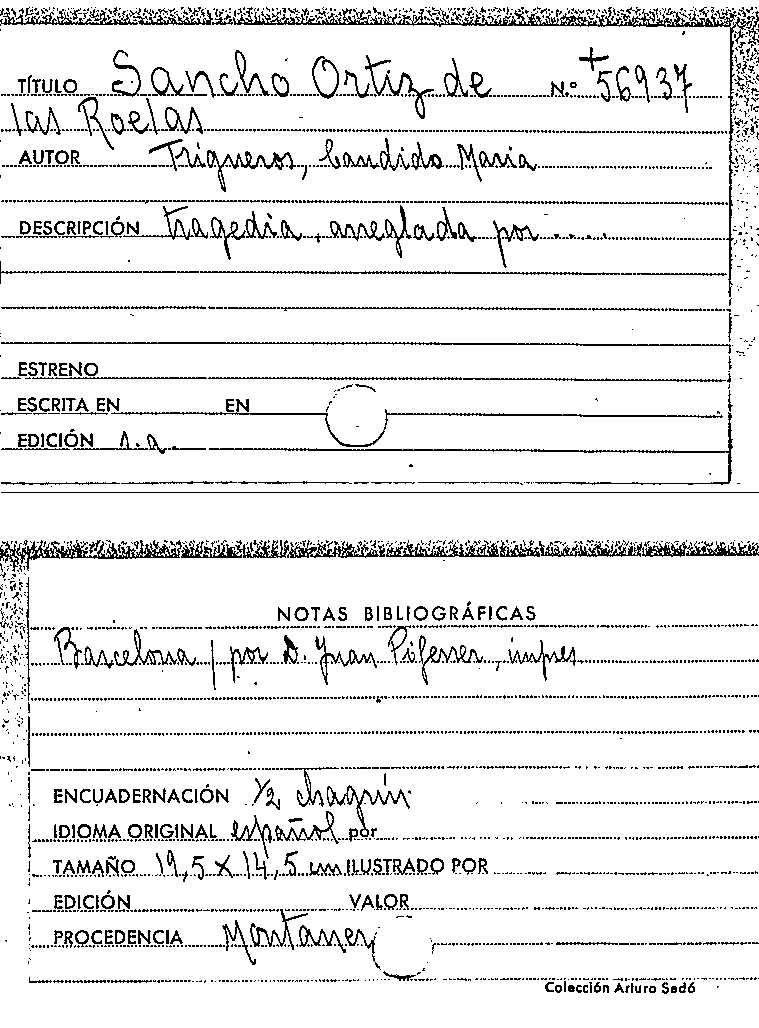 TÍTULO Sancho Ortiz de N.º +56937
las Roelas
AUTOR Trigueros, Candido Maria
DESCRIPCIÓN tragedia, arreglada por ....
ESTRENO
ESCRITA EN EN
EDICIÓN s.a.
NOTAS BIBLIOGRÁFICAS
Barcelona / por D. Juan Piferrer, impres
ENCUADERNACIÓN 1/2 chagrín
IDIOMA ORIGINAL español por
TAMAÑO 19,5 x 14,5 cm ILUSTRADO POR
EDICIÓN VALOR
PROCEDENCIA Montaner
Colección Arturo Sedó